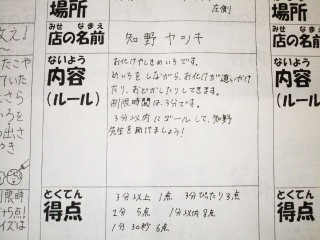 場所
圧倒
みせ なまえ
店の名前
知野ヤシキ
ないよう
内容
(ルール)
おばけやしきめいろです。
めいろをしながら、おばけが追いかけ
たり、おどかしたりしてきます。
制限時間は、3分です。
3分以内にゴールして、知野
先生を助けましょう!
とくてん
得点
3分以上 1点 3分ぴったり3点
2分 5点 1分以内8点
1分30秒 6点